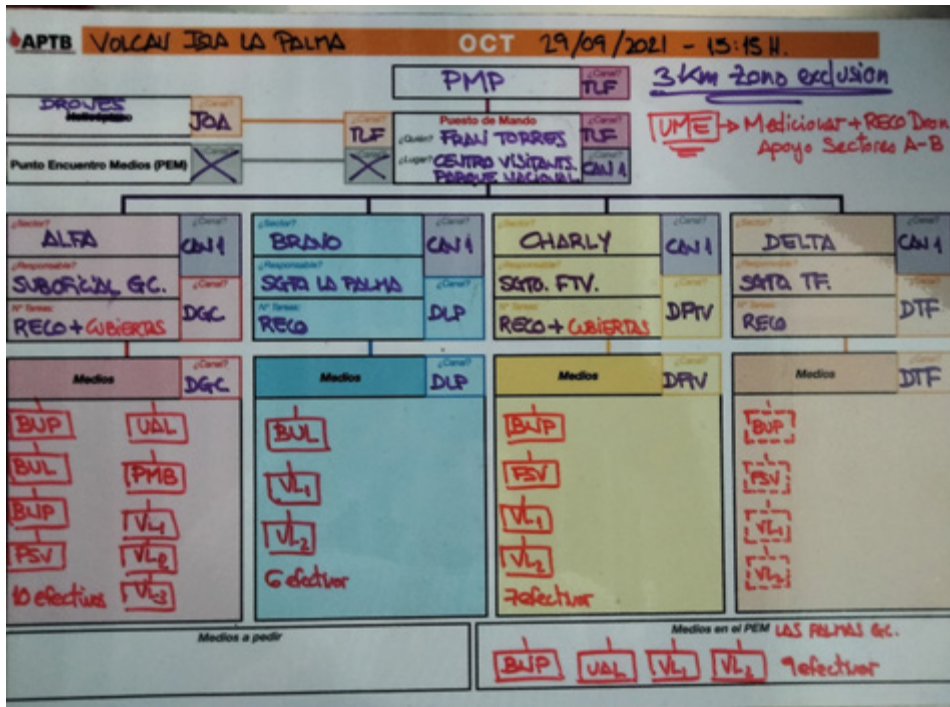 APTB VOLCAN ISLA LA PALMA OCT 29/09/2021 - 15:15 H.
PMP ¿Canal? TLF
3 Km zona exclusion
DRONES ¿Canal? JOA
¿Canal? TLF
Puesto de Mando ¿Canal? TLF
¿Quién? FRAN TORRES
¿Lugar? CENTRO VISITANTS. ¿Canal? CAN 1
PARQUE NACIONAL
UME → Medicionar + RECO Dron
Apoyo Sectores A-B
Punto Encuentro Medios (PEM) ¿Canal? X ¿Canal? X
¿Sector? ALFA ¿Canal? CAN 1
¿Responsable? SUBOFICIAL GC.
Nº Tareas: RECO + CUBIERTAS ¿Canal? DGC
Medios ¿Canal? DGC
BUP UAL
BUL PMB
BUP VL1
FSV VL2
10 efectivos VL3
¿Sector? BRAVO ¿Canal? CAN 1
¿Responsable? SGTO LA PALMA
Nº Tareas: RECO ¿Canal? DLP
Medios ¿Canal? DLP
BUL
VL1
VL2
6 efectivos
¿Sector? CHARLY ¿Canal? CAN 1
¿Responsable? SGTO. FTV.
Nº Tareas: RECO + CUBIERTAS ¿Canal? DFTV
Medios ¿Canal? DFTV
BUP
FSV
VL1
VL2
7 efectivos
¿Sector? DELTA ¿Canal? CAN 1
¿Responsable? SGTO TF.
Nº Tareas: RECO ¿Canal? DTF
Medios ¿Canal? DTF
BUP
FSV
VL1
VL2
Medios a pedir
Medios en el PEM LAS PALMAS GC.
BUP UAL VL1 VL2 9 efectivos